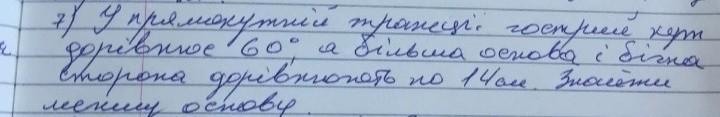 7) У прямокутній трапеції гострий кут
дорівнює 60°, а більша основа і бічна
сторона дорівнюють по 14 см. Знайти
меншу основу.